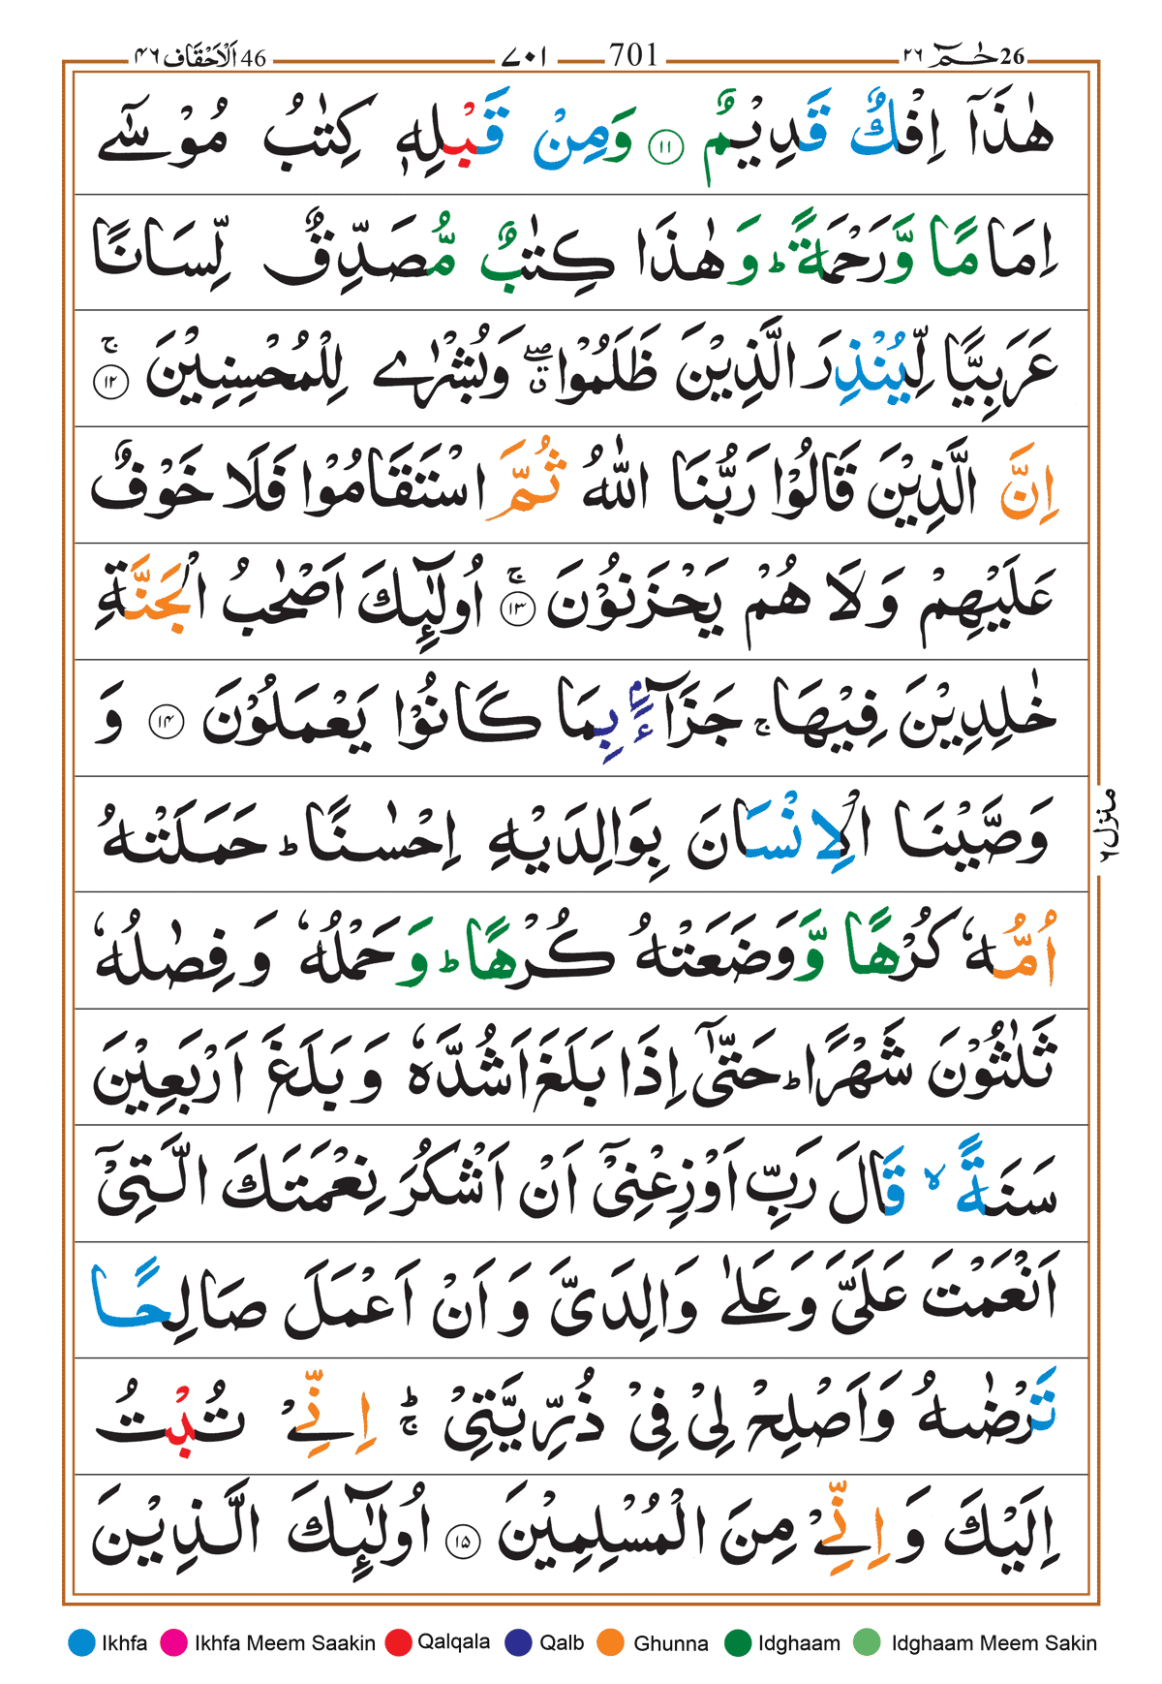 26 حٰـمٓ ٢٦ 701 ٧٠١ 46 اَلْاَحْقَاف ٤٦
هٰذَاۤ اِفْكٌ قَدِیْمٌ ۝۱۱ وَمِنْ قَبْلِهٖ كِتٰبُ مُوْسٰۤی
اِمَامًا وَّرَحْمَةً ؕ وَهٰذَا كِتٰبٌ مُّصَدِّقٌ لِّسَانًا
عَرَبِیًّا لِّیُنْذِرَ الَّذِیْنَ ظَلَمُوْا ۖۗ وَبُشْرٰی لِلْمُحْسِنِیْنَ ۚ۝۱۲
اِنَّ الَّذِیْنَ قَالُوْا رَبُّنَا اللّٰهُ ثُمَّ اسْتَقَامُوْا فَلَا خَوْفٌ
عَلَیْهِمْ وَلَا هُمْ یَحْزَنُوْنَ ۚ۝۱۳ اُولٰٓىِٕكَ اَصْحٰبُ الْجَنَّةِ
خٰلِدِیْنَ فِیْهَا ۚ جَزَآءًۢ بِمَا كَانُوْا یَعْمَلُوْنَ ۝۱۴ وَ
وَصَّیْنَا الْاِنْسَانَ بِوَالِدَیْهِ اِحْسٰنًا ؕ حَمَلَتْهُ
اُمُّهٗ كُرْهًا وَّوَضَعَتْهُ كُرْهًا ؕ وَحَمْلُهٗ وَفِصٰلُهٗ
ثَلٰثُوْنَ شَهْرًا ؕ حَتّٰۤی اِذَا بَلَغَ اَشُدَّهٗ وَبَلَغَ اَرْبَعِیْنَ
سَنَةً ۙ قَالَ رَبِّ اَوْزِعْنِیْۤ اَنْ اَشْكُرَ نِعْمَتَكَ الَّتِیْۤ
اَنْعَمْتَ عَلَیَّ وَعَلٰی وَالِدَیَّ وَاَنْ اَعْمَلَ صَالِحًا
تَرْضٰىهُ وَاَصْلِحْ لِیْ فِیْ ذُرِّیَّتِیْ ؕۚ اِنِّیْ تُبْتُ
اِلَیْكَ وَاِنِّیْ مِنَ الْمُسْلِمِیْنَ ۝۱۵ اُولٰٓىِٕكَ الَّذِیْنَ
منزل ٦
Ikhfa Ikhfa Meem Saakin Qalqala Qalb Ghunna Idghaam Idghaam Meem Sakin